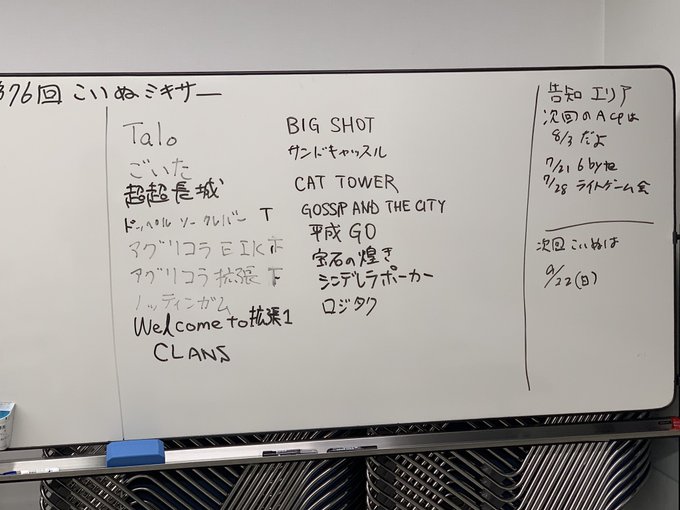 76回 こいぬミキサー
Talo
ごいた
超超長城
ドッペルソークレバー T
アグリコラ EIK
アグリコラ拡張
ノッティンガム
Welcome to 拡張1
CLANS
BIG SHOT
サンドキャッスル
CAT TOWER
GOSSIP AND THE CITY
平成 GO
宝石の煌き
シンデレラポーカー
ロジタク
告知 エリア
次回の
8/3 だよ
7/21 6byte
7/28 ライトゲーム会
次回 こいぬは
9/22(日)